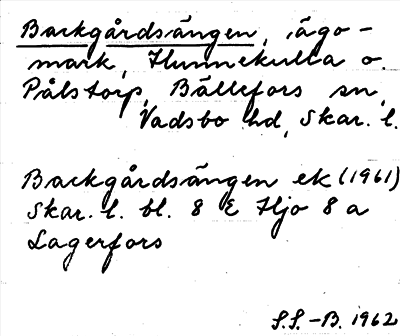 Backgårdsängen, ägo-
mark, Hunnekulla o.
Pålstorp, Bällefors sn,
Vadsbo hd, Skar. l.
Backgårdsängen ek (1961)
Skar. l. bl. 8 E Hjo 8 a
Lagerfors
S.S.-B. 1962